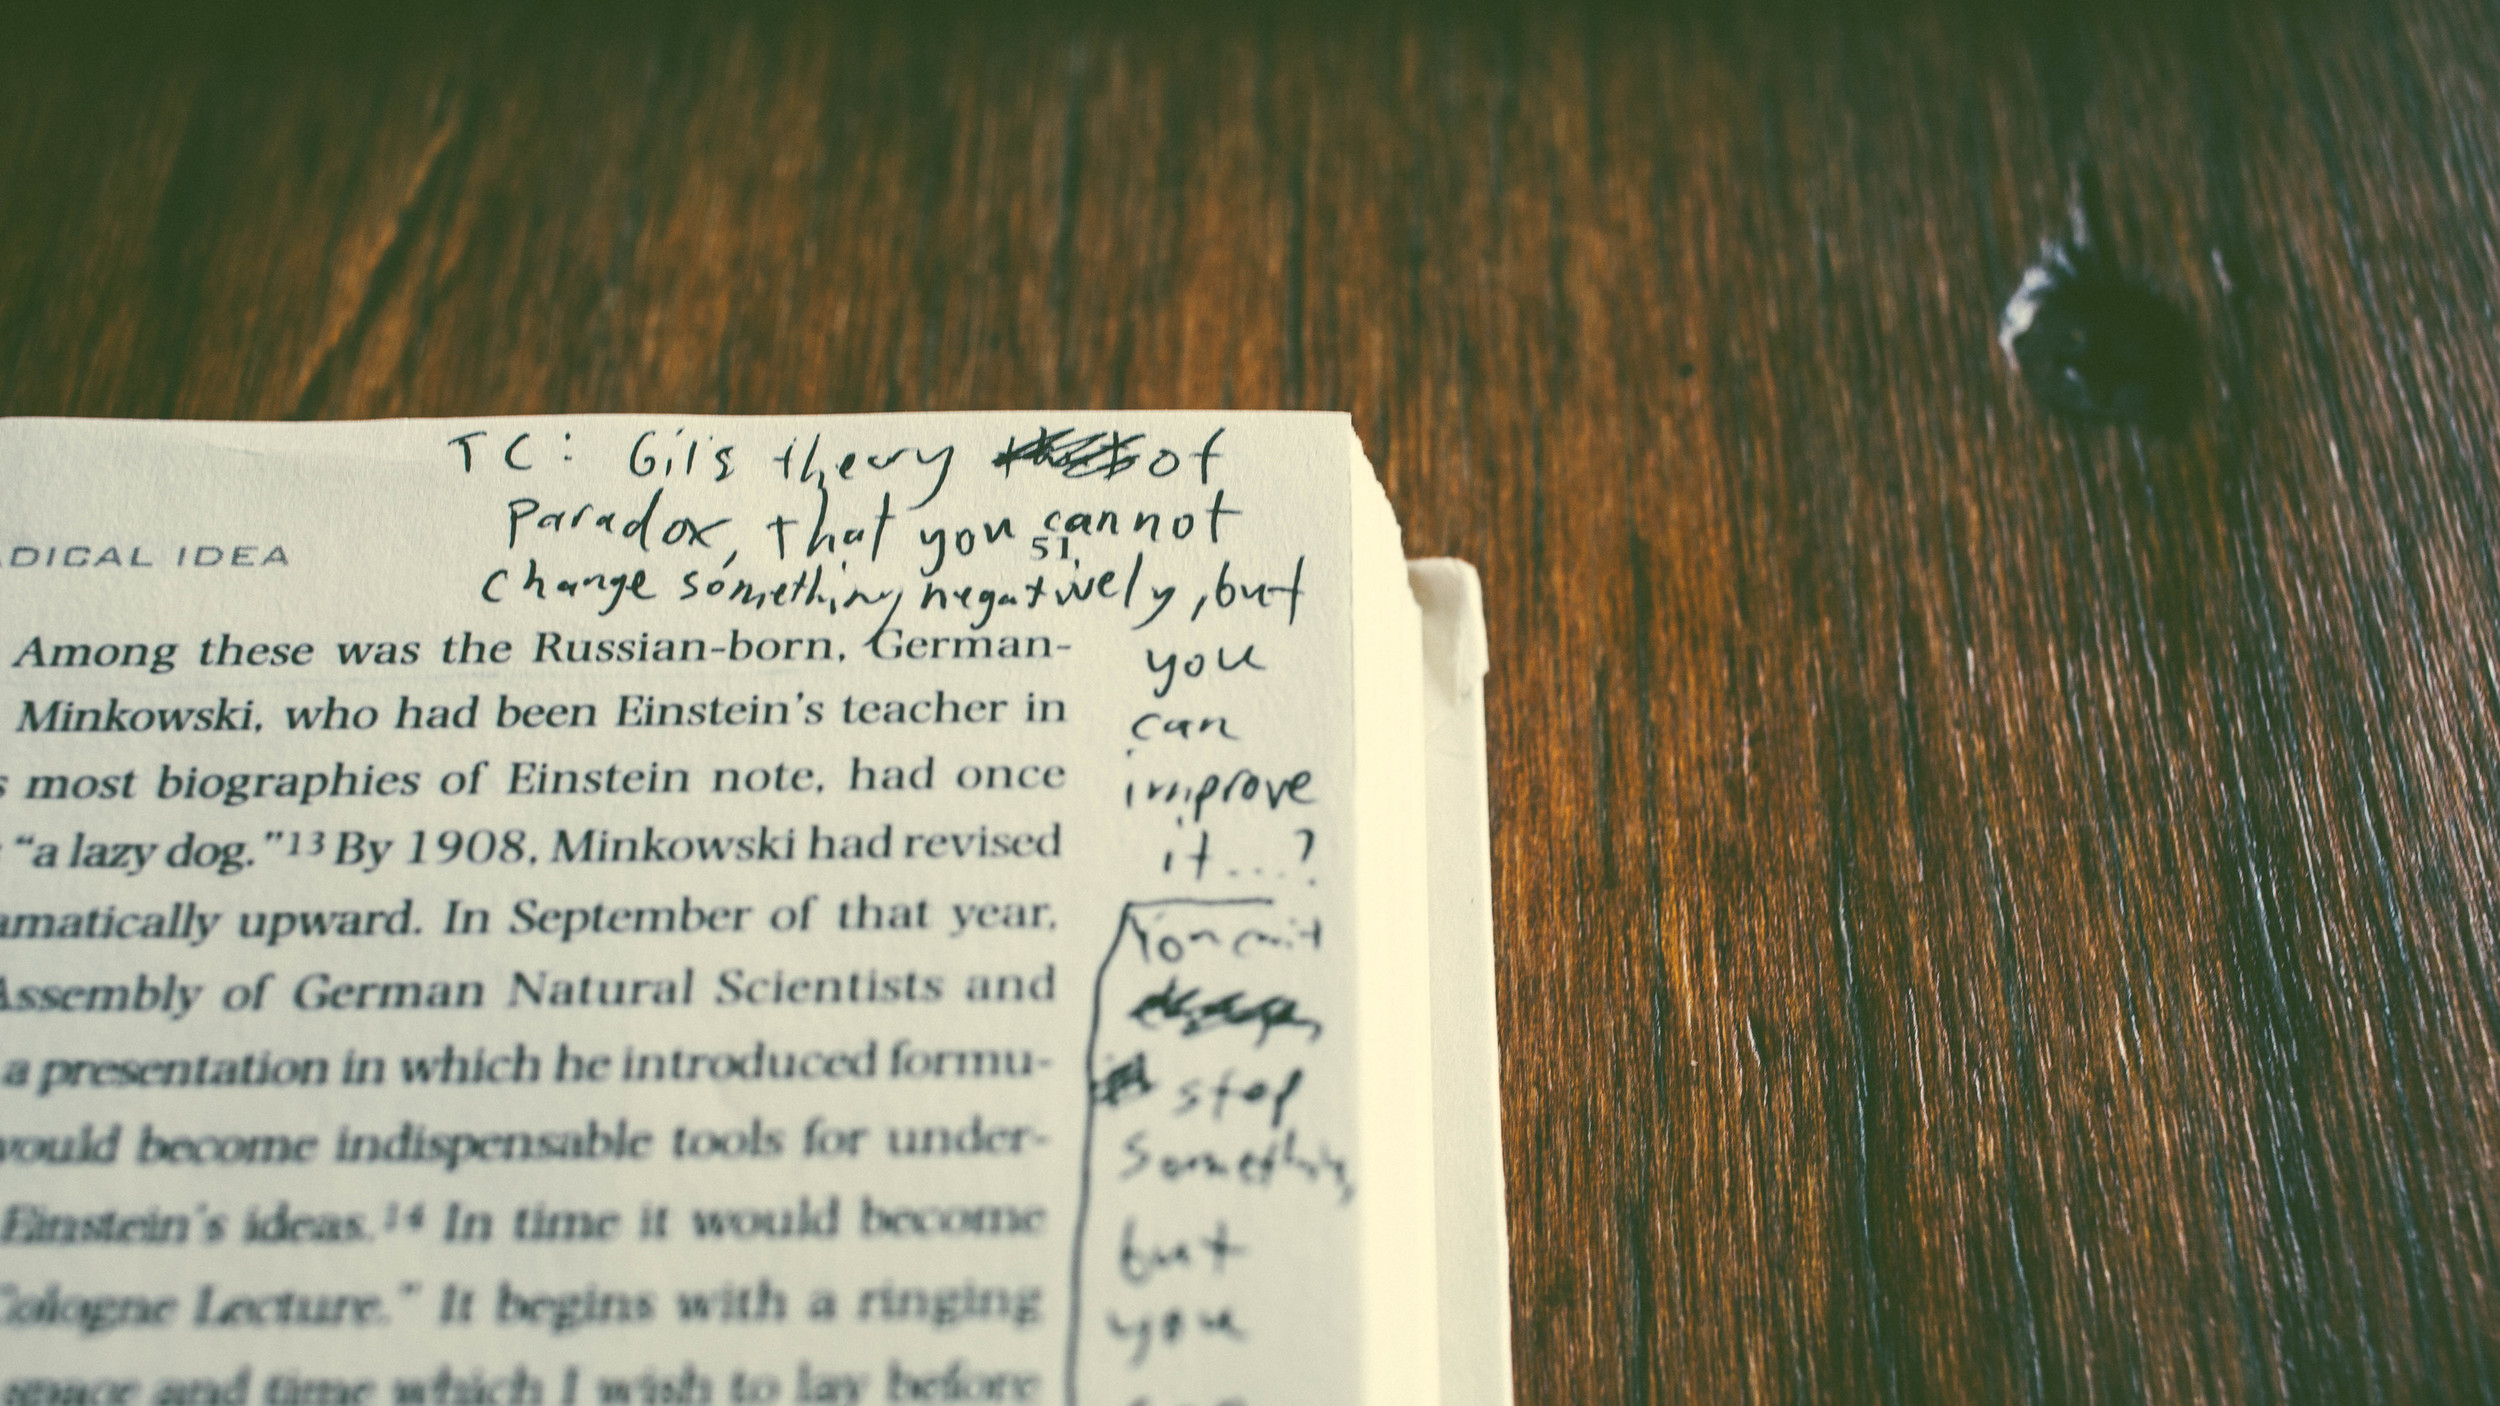 TC: Gil's theory of
Paradox, that you cannot
51
change something negatively, but
you
can
improve
it...?
You can't
stop
something
but
you
DICAL IDEA
Among these was the Russian-born, German-
Minkowski, who had been Einstein's teacher in
s most biographies of Einstein note, had once
"a lazy dog."13 By 1908, Minkowski had revised
amatically upward. In September of that year,
Assembly of German Natural Scientists and
a presentation in which he introduced formu-
would become indispensable tools for under-
Einstein's ideas.14 In time it would become
Cologne Lecture." It begins with a ringing
space and time which I wish to lay before